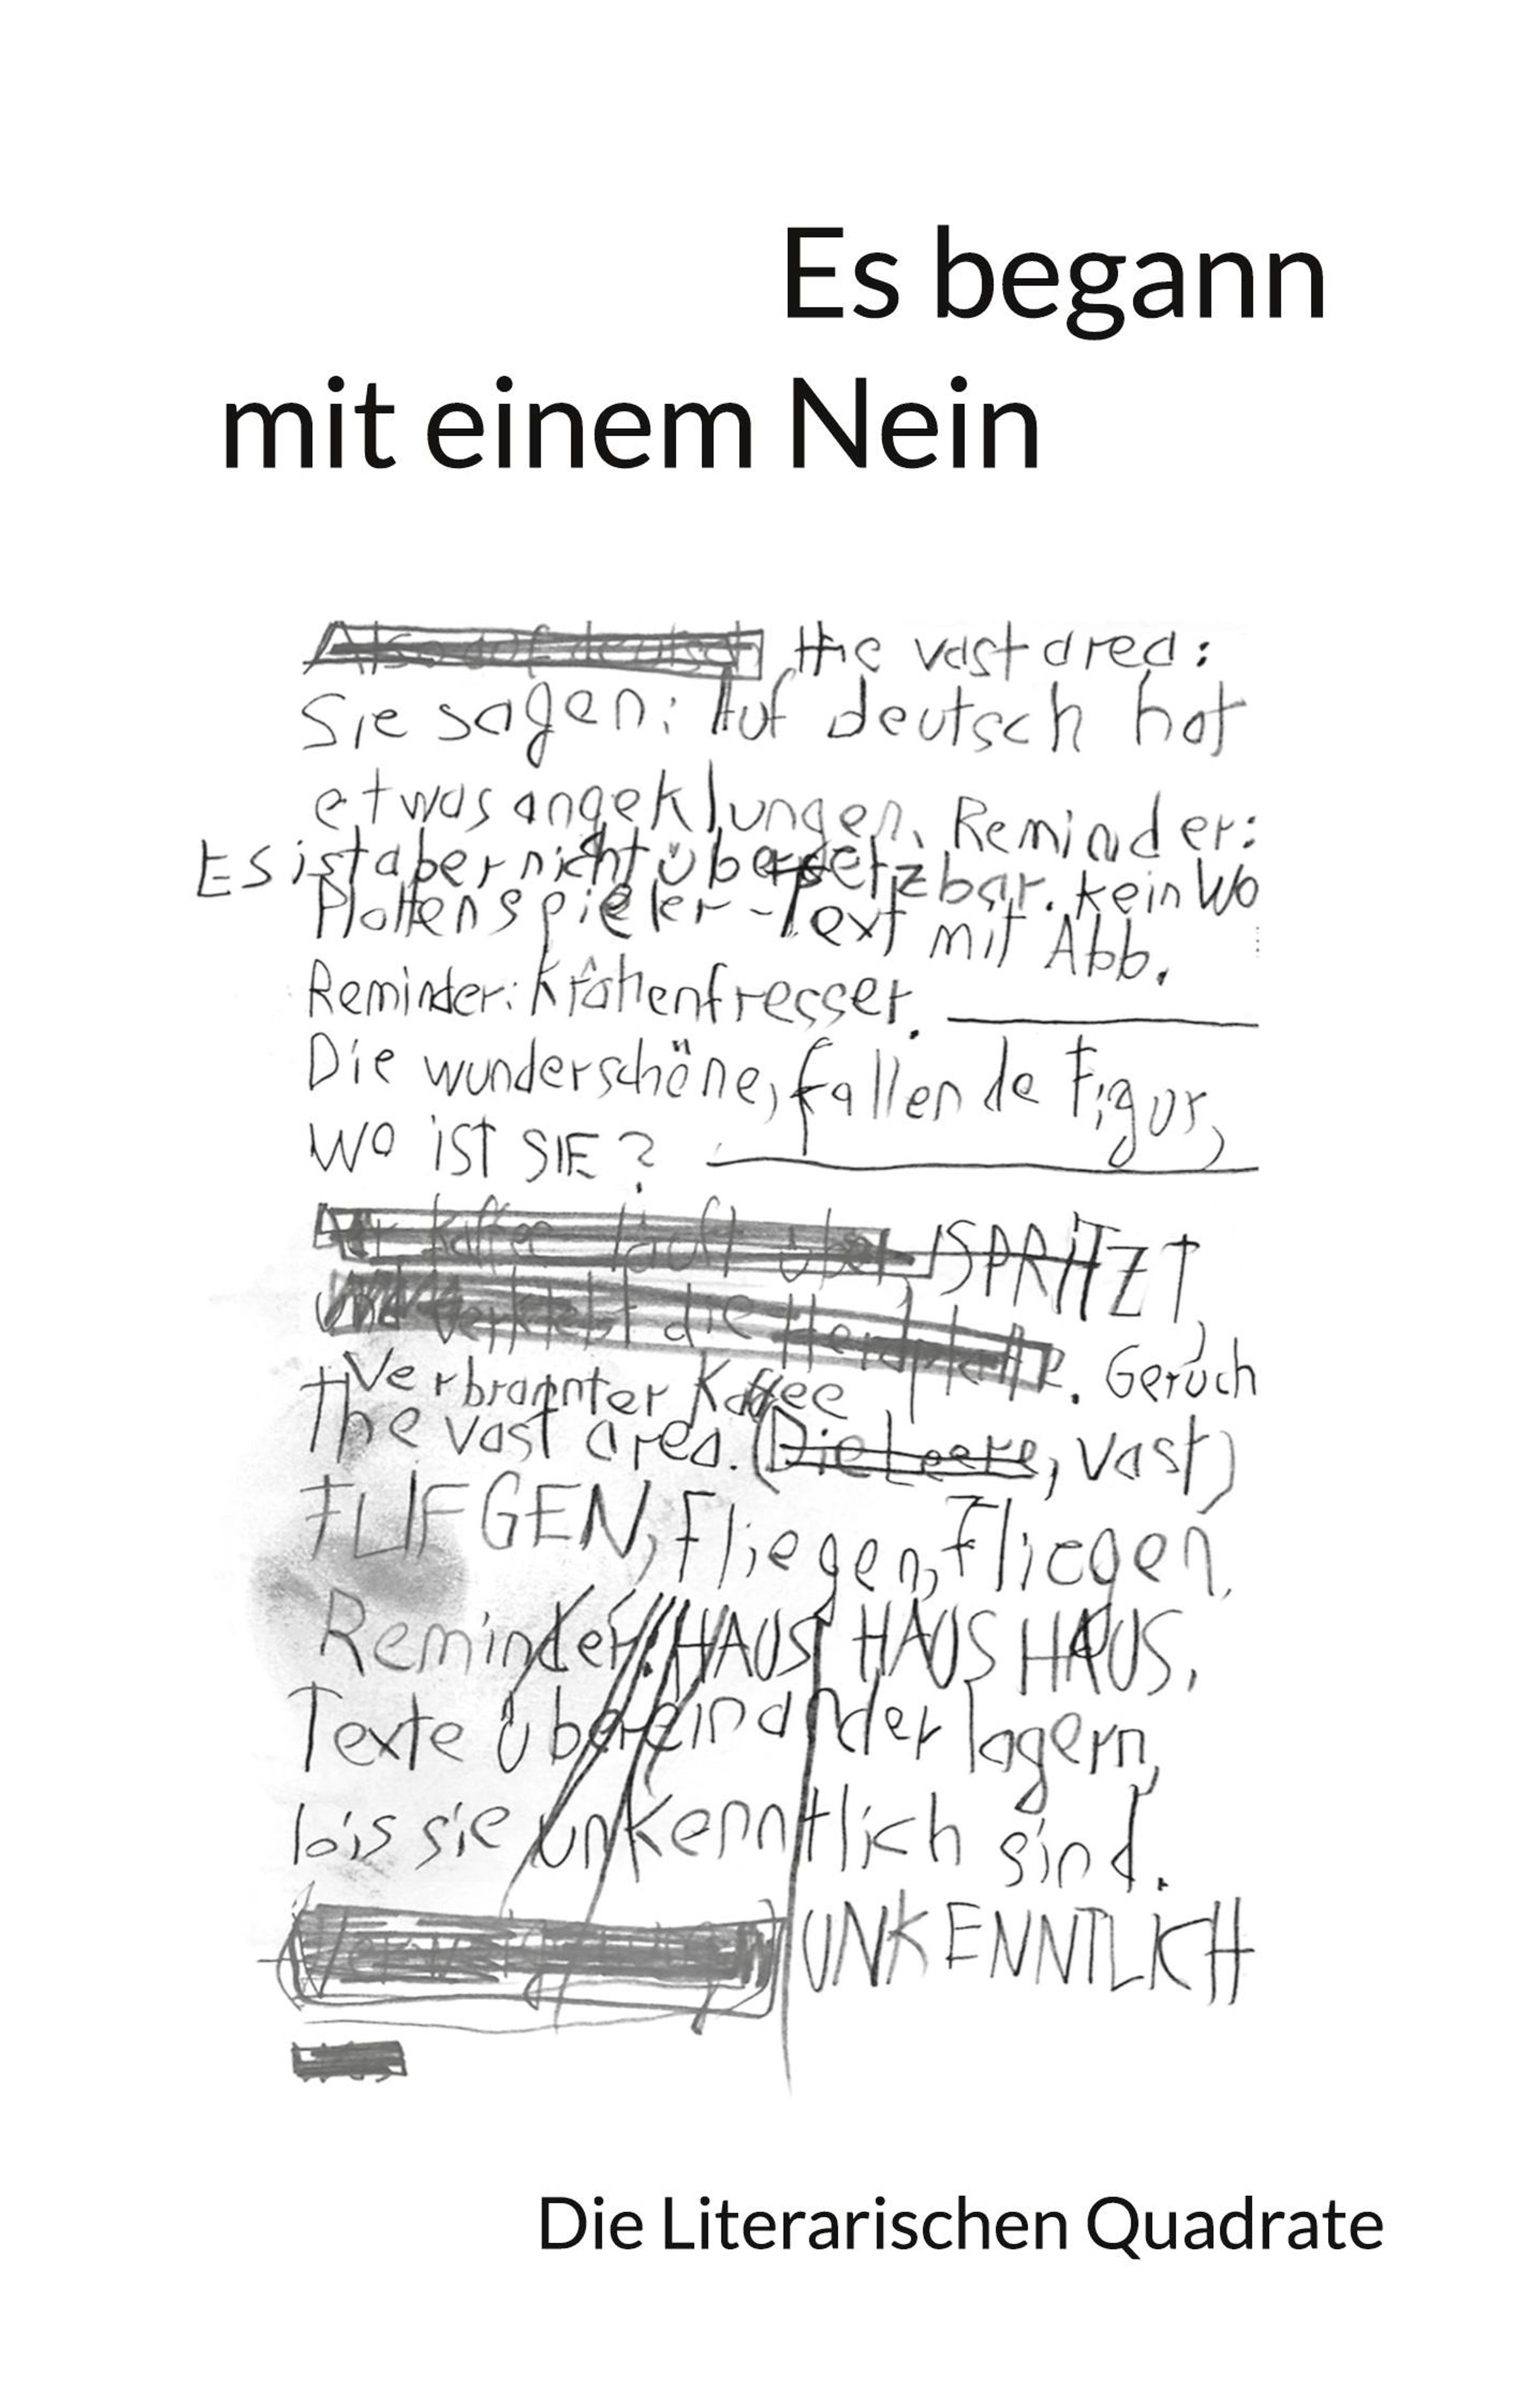 Es begann
mit einem Nein
Also auf deutsch the vast area:
Sie sagen: Auf deutsch hat
etwas angeklungen. Reminder:
Es ist aber nicht übersetzbar. kein Wo
Plattenspieler-Text mit Abb.
Reminder: Krähenfresser.
Die wunderschöne, fallende Figur,
WO IST SIE?
Kaffee läuft über, SPRITZT,
und verklebt die Herdplatte. Geruch
Verbrannter Kaffee
The vast area. (Die Leere, vast)
FLIEGEN, Fliegen, Fliegen,
Reminder: HAUS HAUS HAUS.
Texte übereinander lagern,
bis sie unkenntlich sind.
UNKENNTLICH
Die Literarischen Quadrate